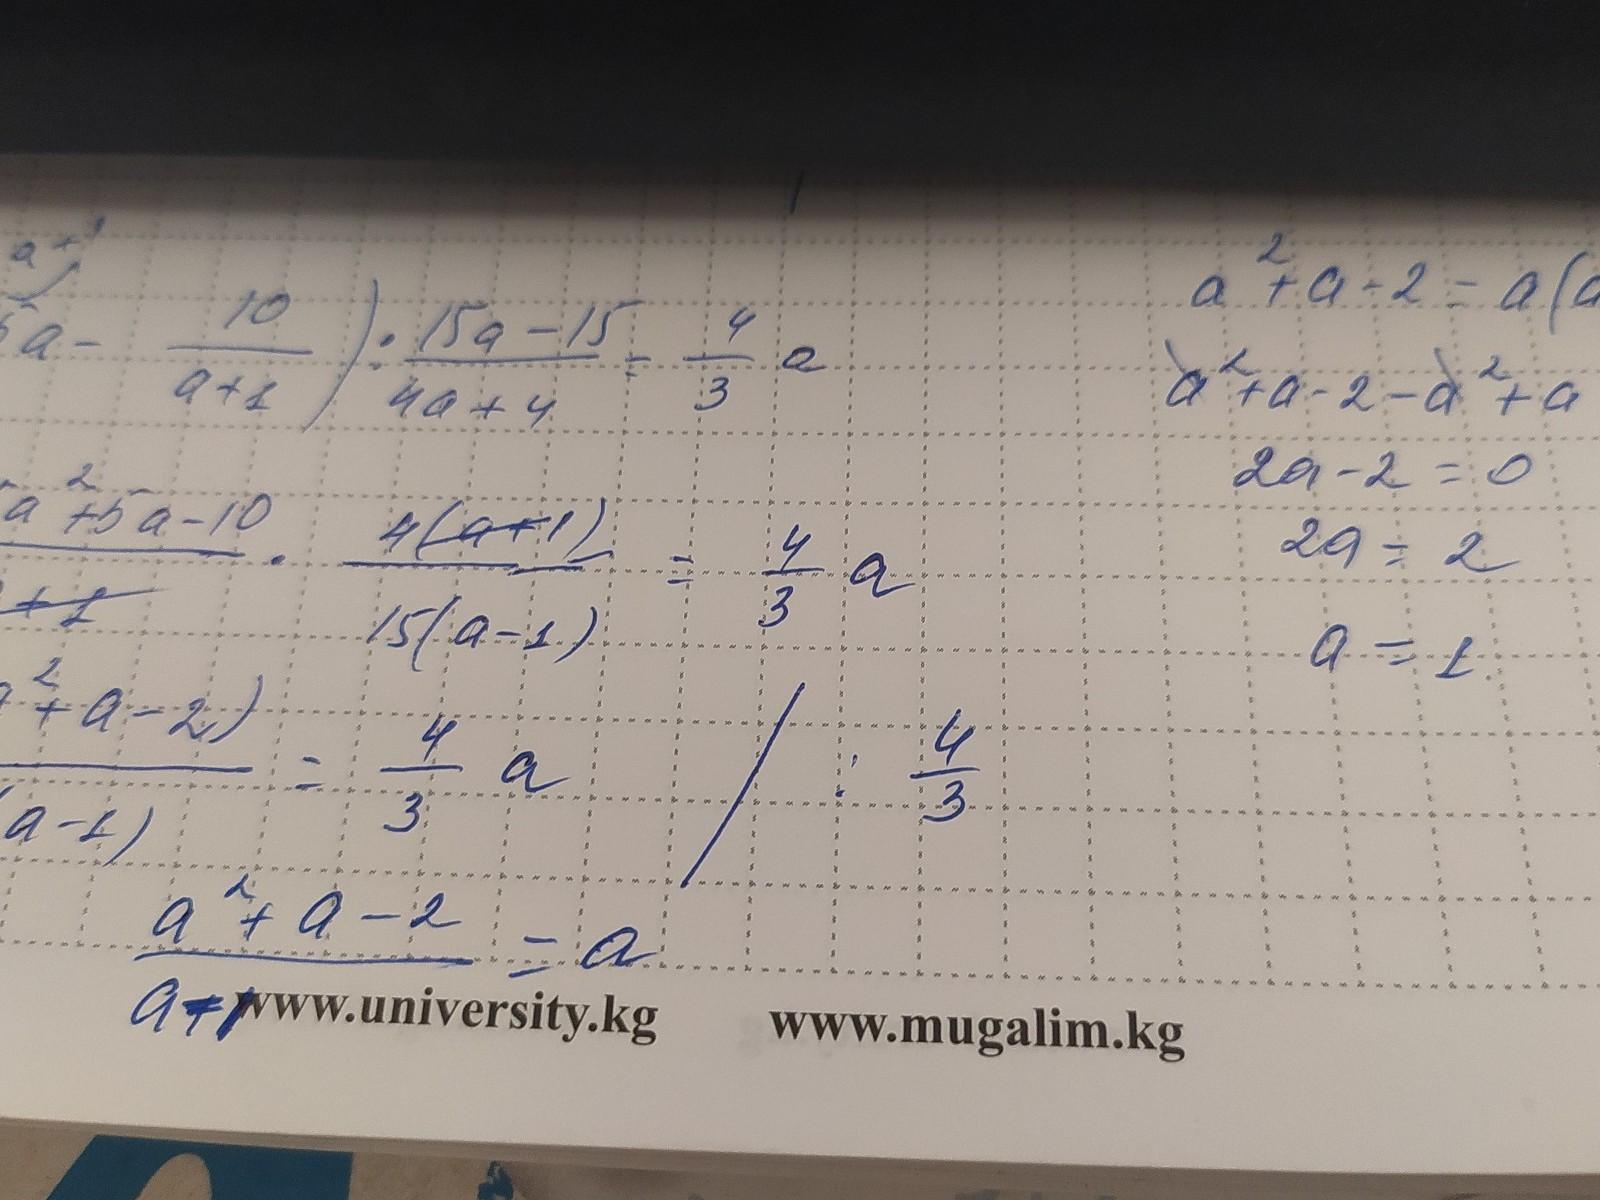 a+1
5a - 10/(a+1)) : (15a-15)/(4a+4) = 4/3 a
a²+5a-10 / +1 · 4(a+1) / 15(a-1) = 4/3 a
a²+a-2) / (a-1) = 4/3 a / : 4/3
a²+a-2 / a-1 = a
a²+a-2 = a(a
a²+a-2-a²+a
2a-2=0
2a=2
a=1
www.university.kg www.mugalim.kg